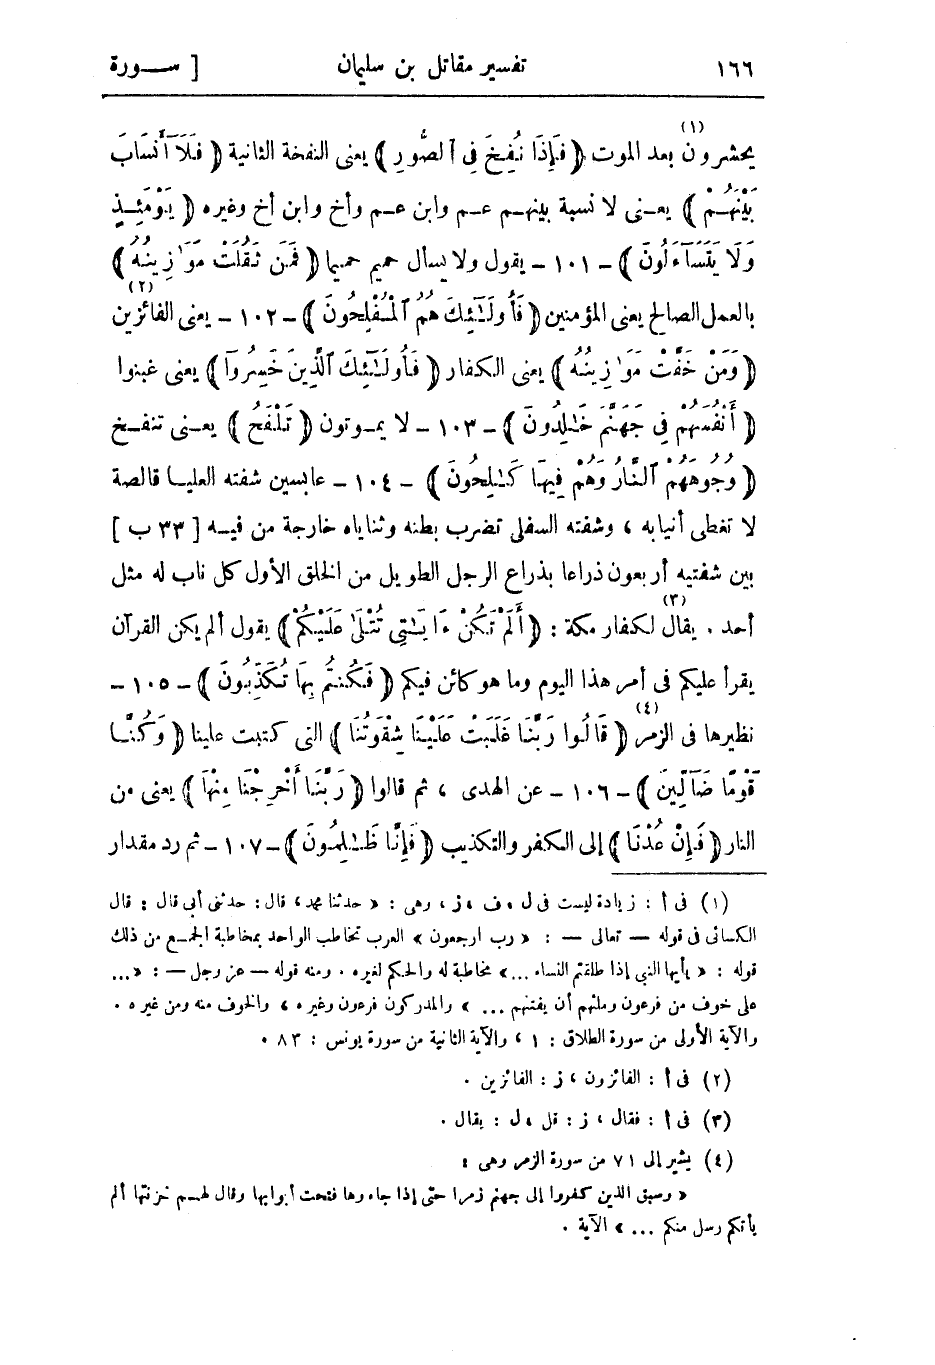 ١٦٦ تفسير مقاتل بن سليمان [ ســورة
يحشرون(١) بعد الموت ﴿ فَإِذَا نُفِخَ فِى ٱلصُّورِ ﴾ يعنى النفخة الثانية ﴿ فَلَآ أَنسَابَ
بَيْنَهُمْ ﴾ يعـنى لا نسبة بينهـم عـم وابن عـم وأخ وابن أخ وغيره ﴿ يَوْمَئِـذٍ
وَلَا يَتَسَآءَلُونَ ﴾ - ١٠١ - يقول ولا يسأل حميم حميما ﴿ فَمَن ثَقُلَتْ مَوَٰزِينُهُ ﴾
بالعمل الصالح يعنى المؤمنين ﴿ فَأُولَـٰٓئِكَ هُمُ ٱلْمُفْلِحُونَ ﴾ - ١٠٢ - يعنى الفائزين(٢)
﴿ وَمَنْ خَفَّتْ مَوَٰزِينُهُ ﴾ يعنى الكفار ﴿ فَأُولَـٰٓئِكَ ٱلَّذِينَ خَسِرُوٓا ﴾ يعنى غبنوا
﴿ أَنفُسَهُمْ فِى جَهَنَّمَ خَـٰلِدُونَ ﴾ - ١٠٣ - لا يمـوتون ﴿ تَلْفَحُ ﴾ يعـنى تنفـخ
﴿ وُجُوهَهُمُ ٱلنَّارُ وَهُمْ فِيهَا كَـٰلِحُونَ ﴾ - ١٠٤ - عابسين شفته العليـا قالصة
لا تغطى أنيابه ، وشفته السفلى تضرب بطنه وثناياه خارجة من فيـه [ ٣٣ ب ]
بين شفتيه أربعون ذراعا بذراع الرجل الطويل من الخلق الأول كل ناب له مثل
أحد . يقال(٣) لكفار مكة : ﴿ أَلَمْ تَكُنْ ءَايَـٰتِى تُتْلَىٰ عَلَيْكُمْ ﴾ يقول ألم يكن القرآن
يقرأ عليكم فى أمر هذا اليوم وما هو كائن فيكم ﴿ فَكُنتُم بِهَا تُكَذِّبُونَ ﴾ - ١٠٥ -
نظيرها فى الزمر(٤) ﴿ قَالُوا رَبَّنَا غَلَبَتْ عَلَيْنَا شِقْوَتُنَا ﴾ التى كتبت علينا ﴿ وَكُنَّـا
قَوْمًا ضَآلِّينَ ﴾ - ١٠٦ - عن الهدى ، ثم قالوا ﴿ رَبَّنَا أَخْرِجْنَا مِنْهَا ﴾ يعنى من
النار ﴿ فَإِنْ عُدْنَا ﴾ إلى الكفر والتكذيب ﴿ فَإِنَّا ظَـٰلِمُونَ ﴾ - ١٠٧ - ثم رد مقدار
(١) فى أ : زيادة ليست فى ل ، ف ، ز ، وهى : « حدثنا محمد ، قال : حدثنى أبى قال : قال
الكسائى فى قوله — تعالى — : « رب ارجعون » العرب تخاطب الواحد بمخاطبة الجمـع من ذلك
قوله : « يأيها النبى إذا طلقتم النساء ... » مخاطبة له والحكم لغيره . ومنه قوله — عز وجل — : « ...
على خوف من فرعون وملئهم أن يفتنهم ... » والمدركون فرعون وغيره ، والخوف منه ومن غيره .
والآية الأولى من سورة الطلاق : ١ ، والآية الثانية من سورة يونس : ٨٣ .
(٢) فى أ : الفائزون ، ز : الفائزين .
(٣) فى أ : فقال ، ز : قل ، ل : يقال .
(٤) يشير إلى ٧١ من سورة الزمر وهى :
« وسيق الذين كفروا إلى جهنم زمرا حتى إذا جاءوها فتحت أبوابها وقال لهـم خزنتها ألم
يأتكم رسل منكم ... » الآية .